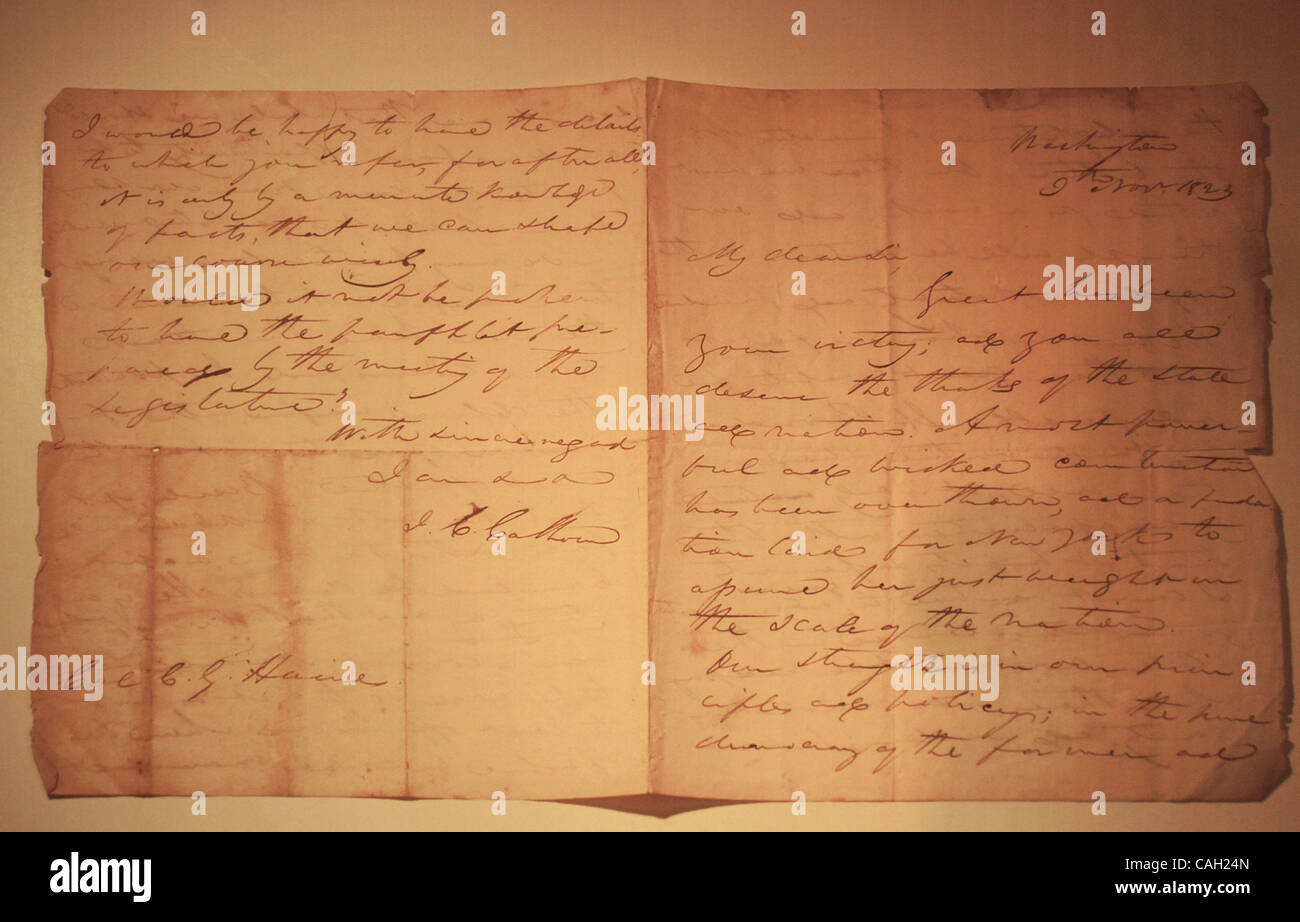 Washington
9th Novr 1823
My dear Sir,
Great has been
your victory; and you all
deserve the thanks of the State
and nation. A most power-
ful and wicked combination
has been overthrown, and a founda
tion laid for New York to
assume her just weight in
the scale of the nation.
Our strength is in our prin
ciples and policy; in the pure
democracy of the former and
I would be happy to have the details
to which you refer, for after all,
it is only by a minute knowledge
of facts, that we can shape
our course wisely.
Would it not be
to have the pamphlet pre-
pared by the meeting of the
Legislature?
With sincere regard
I am &
J. C. Calhoun
C. G. Haine
alamy
Image ID: CAH24N
www.alamy.com